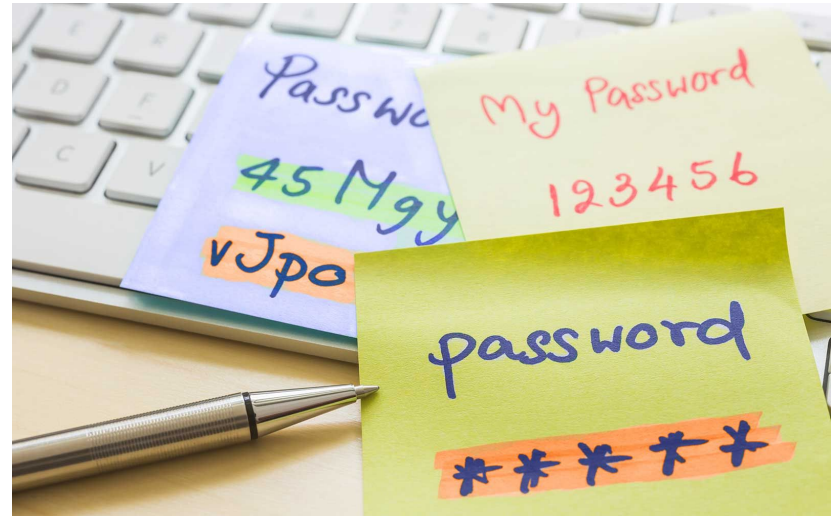 E
R
D
F
C
V
Passwo
45 Mgy
vJpo
My Password
123456
password
*****